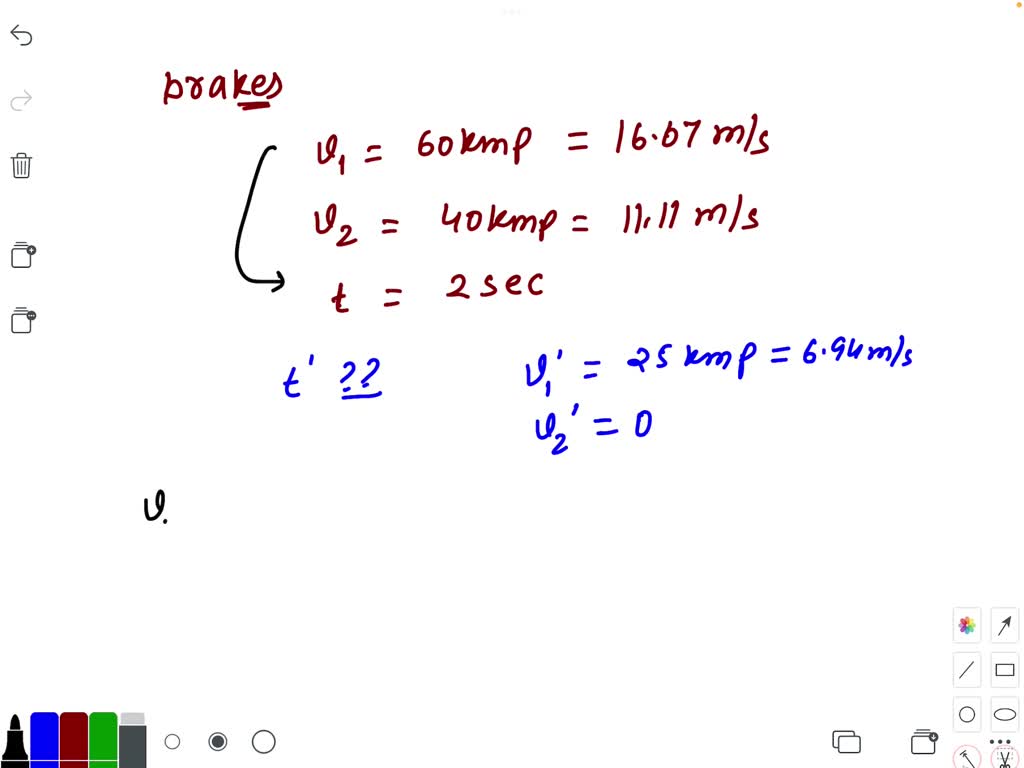 brakes
v₁ = 60 kmp = 16.67 m/s
v₂ = 40 kmp = 11.11 m/s
t = 2 sec
t' ?? v₁' = 25 kmp = 6.94 m/s
v₂' = 0
v.